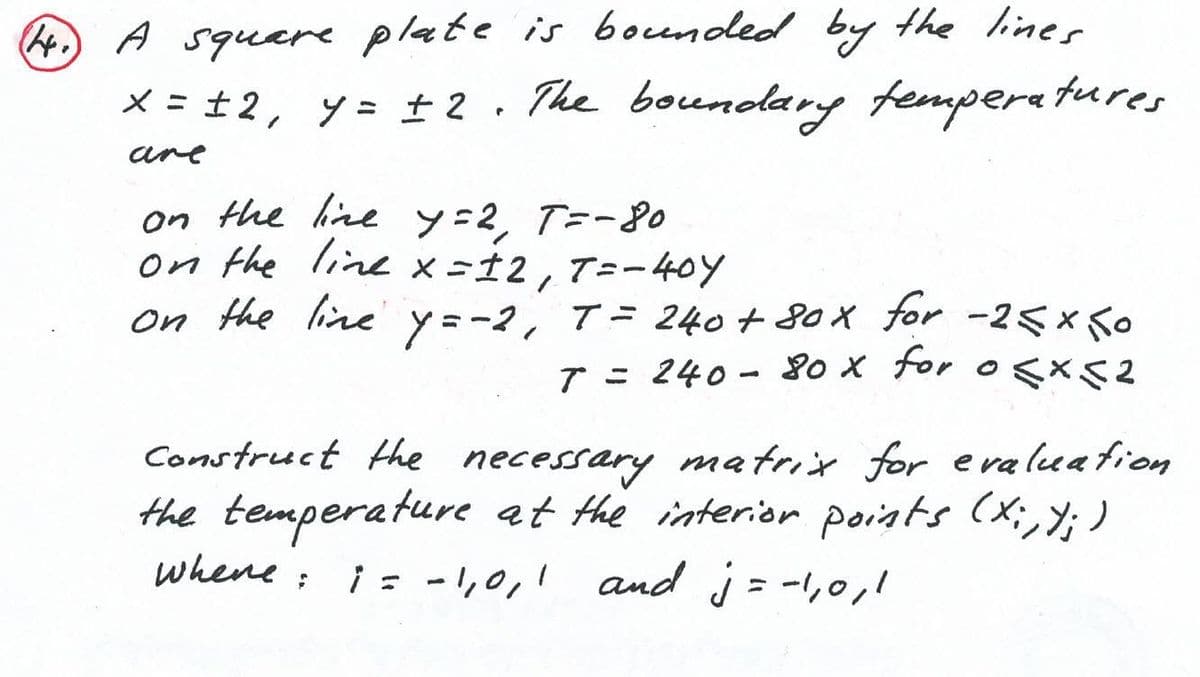 4. A square plate is bounded by the lines
x = ±2, y = ±2. The boundary temperatures
are
on the line y=2, T=-80
on the line x=±2, T=-40y
on the line y=-2, T = 240 + 80x for -2≤x≤0
T = 240 - 80x for 0≤x≤2
Construct the necessary matrix for evaluation
the temperature at the interior points (xi, yj)
where: i = -1,0,1 and j = -1,0,1